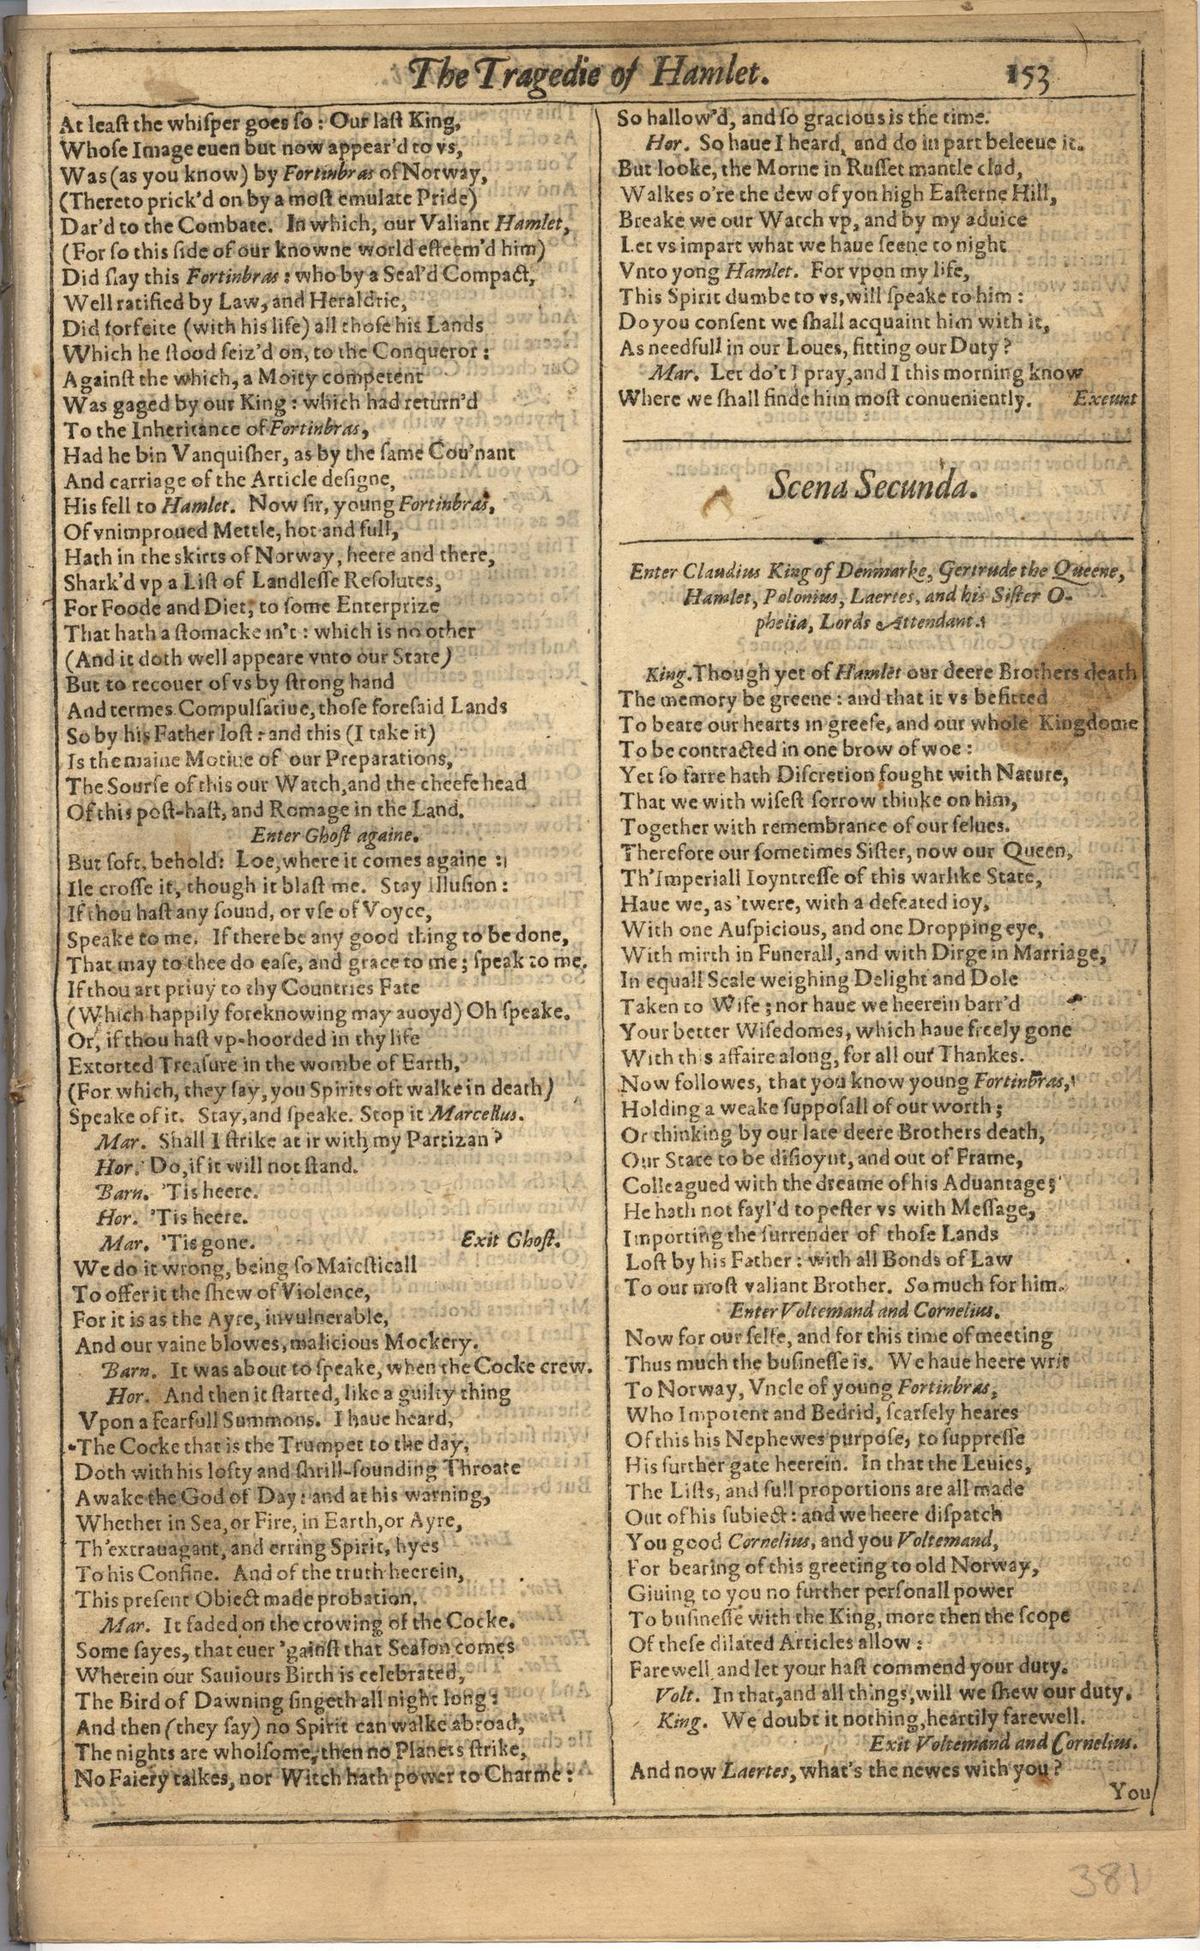 The Tragedie of Hamlet.
153
At least the whisper goes so: Our last King,
Whose Image euen but now appear'd to vs,
Was (as you know) by Fortinbras of Norway,
(Thereto prick'd on by a most emulate Pride)
Dar'd to the Combate. In which, our Valiant Hamlet,
(For so this side of our knowne world esteem'd him)
Did slay this Fortinbras: who by a Seal'd Compact,
Well ratified by Law, and Heraldrie,
Did forfeite (with his life) all those his Lands
Which he stood seiz'd on, to the Conqueror:
Against the which, a Moity competent
Was gaged by our King: which had return'd
To the Inheritance of Fortinbras,
Had he bin Vanquisher, as by the same Cou'nant
And carriage of the Article designe,
His fell to Hamlet. Now sir, young Fortinbras,
Of vnimproued Mettle, hot and full,
Hath in the skirts of Norway, heere and there,
Shark'd vp a List of Landlesse Resolutes,
For Foode and Diet, to some Enterprize
That hath a stomacke in't: which is no other
(And it doth well appeare vnto our State)
But to recouer of vs by strong hand
And termes Compulsatiue, those foresaid Lands
So by his Father lost: and this (I take it)
Is the maine Motiue of our Preparations,
The Sourse of this our Watch, and the cheefe head
Of this post-hast, and Romage in the Land.
Enter Ghost againe.
But soft, behold: Loe, where it comes againe:
Ile crosse it, though it blast me. Stay Illusion:
If thou hast any sound, or vse of Voyce,
Speake to me. If there be any good thing to be done,
That may to thee do ease, and grace to me; speak to me.
If thou art priuy to thy Countries Fate
(Which happily foreknowing may auoyd) Oh speake.
Or, if thou hast vp-hoorded in thy life
Extorted Treasure in the wombe of Earth,
(For which, they say, you Spirits oft walke in death)
Speake of it. Stay, and speake. Stop it Marcellus.
Mar. Shall I strike at it with my Partizan?
Hor. Do, if it will not stand.
Barn. 'Tis heere.
Hor. 'Tis heere.
Mar. 'Tis gone. Exit Ghost.
We do it wrong, being so Maiesticall
To offer it the shew of Violence,
For it is as the Ayre, invulnerable,
And our vaine blowes, malicious Mockery.
Barn. It was about to speake, when the Cocke crew.
Hor. And then it started, like a guilty thing
Vpon a fearfull Summons. I haue heard,
The Cocke that is the Trumpet to the day,
Doth with his lofty and shrill-sounding Throate
Awake the God of Day: and at his warning,
Whether in Sea, or Fire, in Earth, or Ayre,
Th'extrauagant, and erring Spirit, hyes
To his Confine. And of the truth heerein,
This present Obiect made probation.
Mar. It faded on the crowing of the Cocke.
Some sayes, that euer 'gainst that Season comes
Wherein our Sauiours Birth is celebrated,
The Bird of Dawning singeth all night long:
And then (they say) no Spirit can walke abroad,
The nights are wholsome, then no Planets strike,
No Faiery talkes, nor Witch hath power to Charme:
So hallow'd, and so gracious is the time.
Hor. So haue I heard, and do in part beleeue it.
But looke, the Morne in Russet mantle clad,
Walkes o're the dew of yon high Easterne Hill,
Breake we our Watch vp, and by my aduice
Let vs impart what we haue seene to night
Vnto yong Hamlet. For vpon my life,
This Spirit dumbe to vs, will speake to him:
Do you consent we shall acquaint him with it,
As needfull in our Loues, fitting our Duty?
Mar. Let do't I pray, and I this morning know
Where we shall finde him most conueniently. Exeunt
Scena Secunda.
Enter Claudius King of Denmarke, Gertrude the Queene,
Hamlet, Polonius, Laertes, and his Sister O-
phelia, Lords Attendant.
King. Though yet of Hamlet our deere Brothers death
The memory be greene: and that it vs befitted
To beare our hearts in greefe, and our whole Kingdome
To be contracted in one brow of woe:
Yet so farre hath Discretion fought with Nature,
That we with wisest sorrow thinke on him,
Together with remembrance of our selues.
Therefore our sometimes Sister, now our Queen,
Th'Imperiall Ioyntresse of this warlike State,
Haue we, as 'twere, with a defeated ioy,
With one Auspicious, and one Dropping eye,
With mirth in Funerall, and with Dirge in Marriage,
In equall Scale weighing Delight and Dole
Taken to Wife; nor haue we heerein barr'd
Your better Wisedomes, which haue freely gone
With this affaire along, for all our Thankes.
Now followes, that you know young Fortinbras,
Holding a weake supposall of our worth;
Or thinking by our late deere Brothers death,
Our State to be disioynt, and out of Frame,
Colleagued with the dreame of his Aduantage;
He hath not fayl'd to pester vs with Message,
Importing the surrender of those Lands
Lost by his Father: with all Bonds of Law
To our most valiant Brother. So much for him.
Enter Voltemand and Cornelius.
Now for our selfe, and for this time of meeting
Thus much the businesse is. We haue heere writ
To Norway, Vncle of young Fortinbras,
Who Impotent and Bedrid, scarsely heares
Of this his Nephewes purpose, to suppresse
His further gate heerein. In that the Leuies,
The Lists, and full proportions are all made
Out of his subiect: and we heere dispatch
You good Cornelius, and you Voltemand,
For bearing of this greeting to old Norway,
Giuing to you no further personall power
To businesse with the King, more then the scope
Of these dilated Articles allow:
Farewell and let your hast commend your duty.
Volt. In that, and all things, will we shew our duty.
King. We doubt it nothing, heartily farewell.
Exit Voltemand and Cornelius.
And now Laertes, what's the newes with you?
You
381